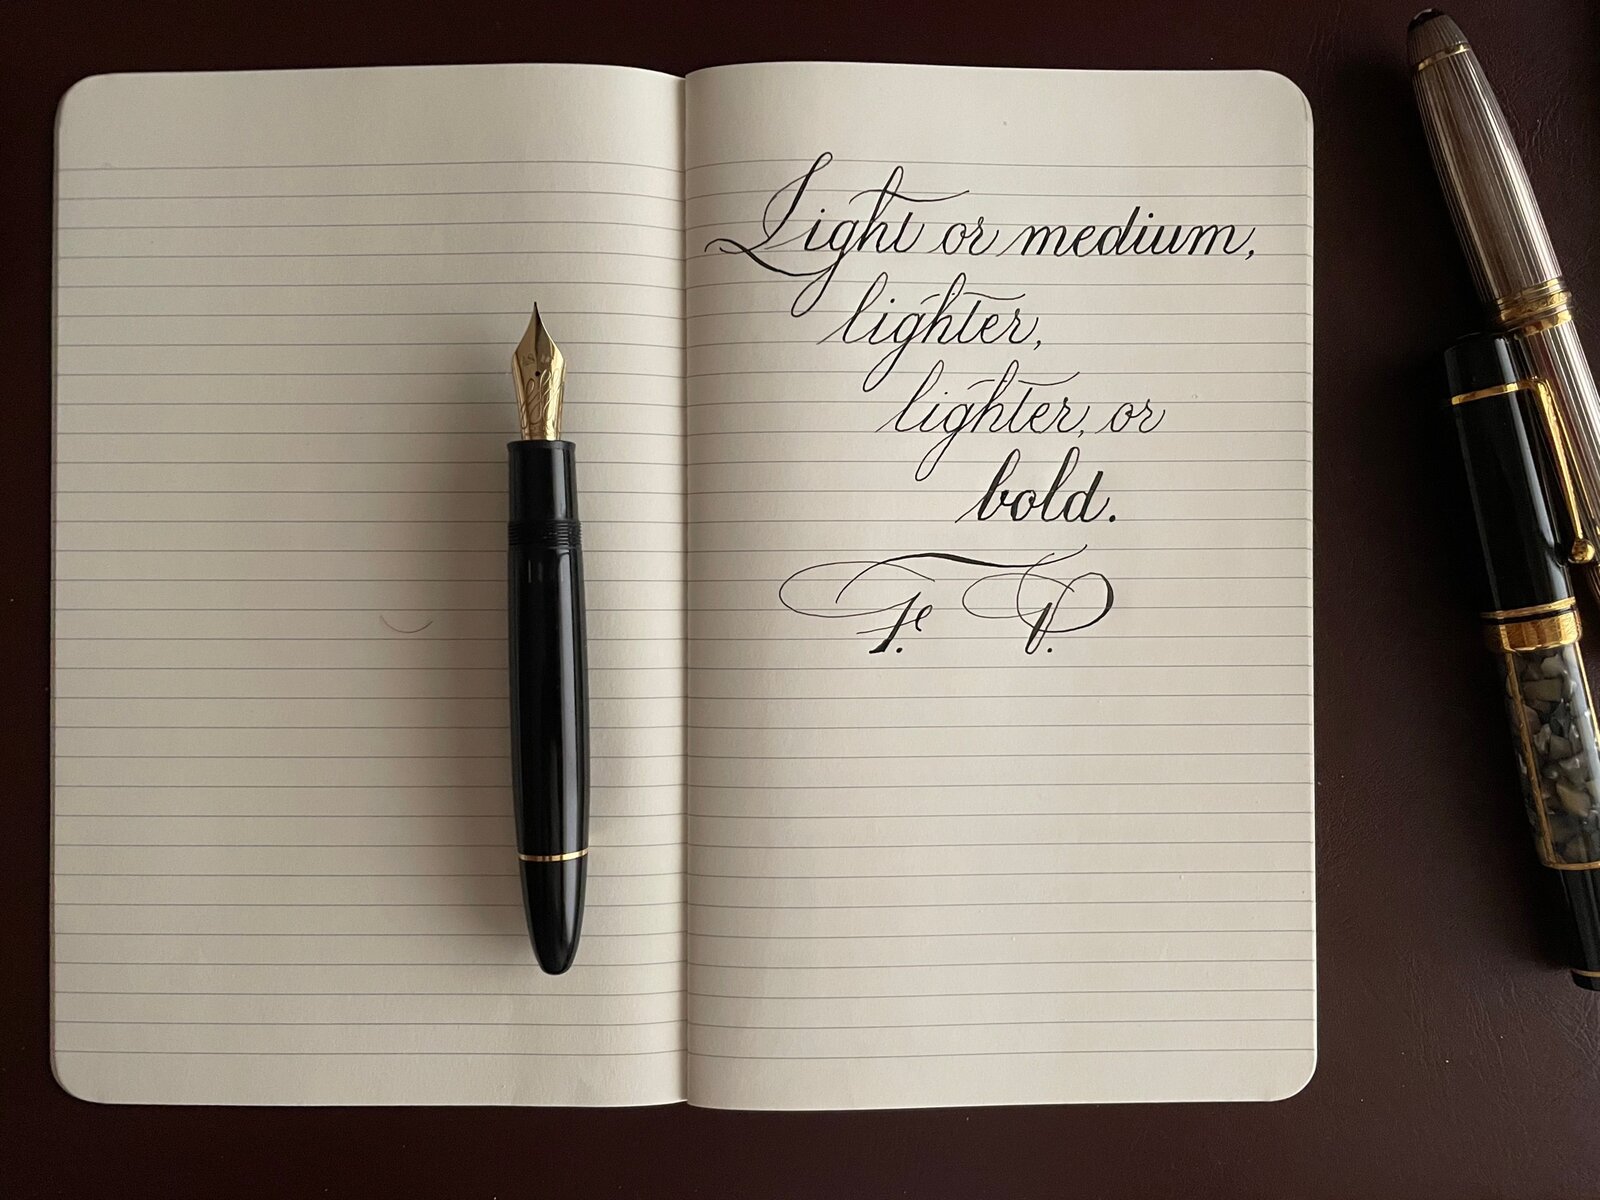 Light or medium,
lighter,
lighter, or
bold.
F. P.